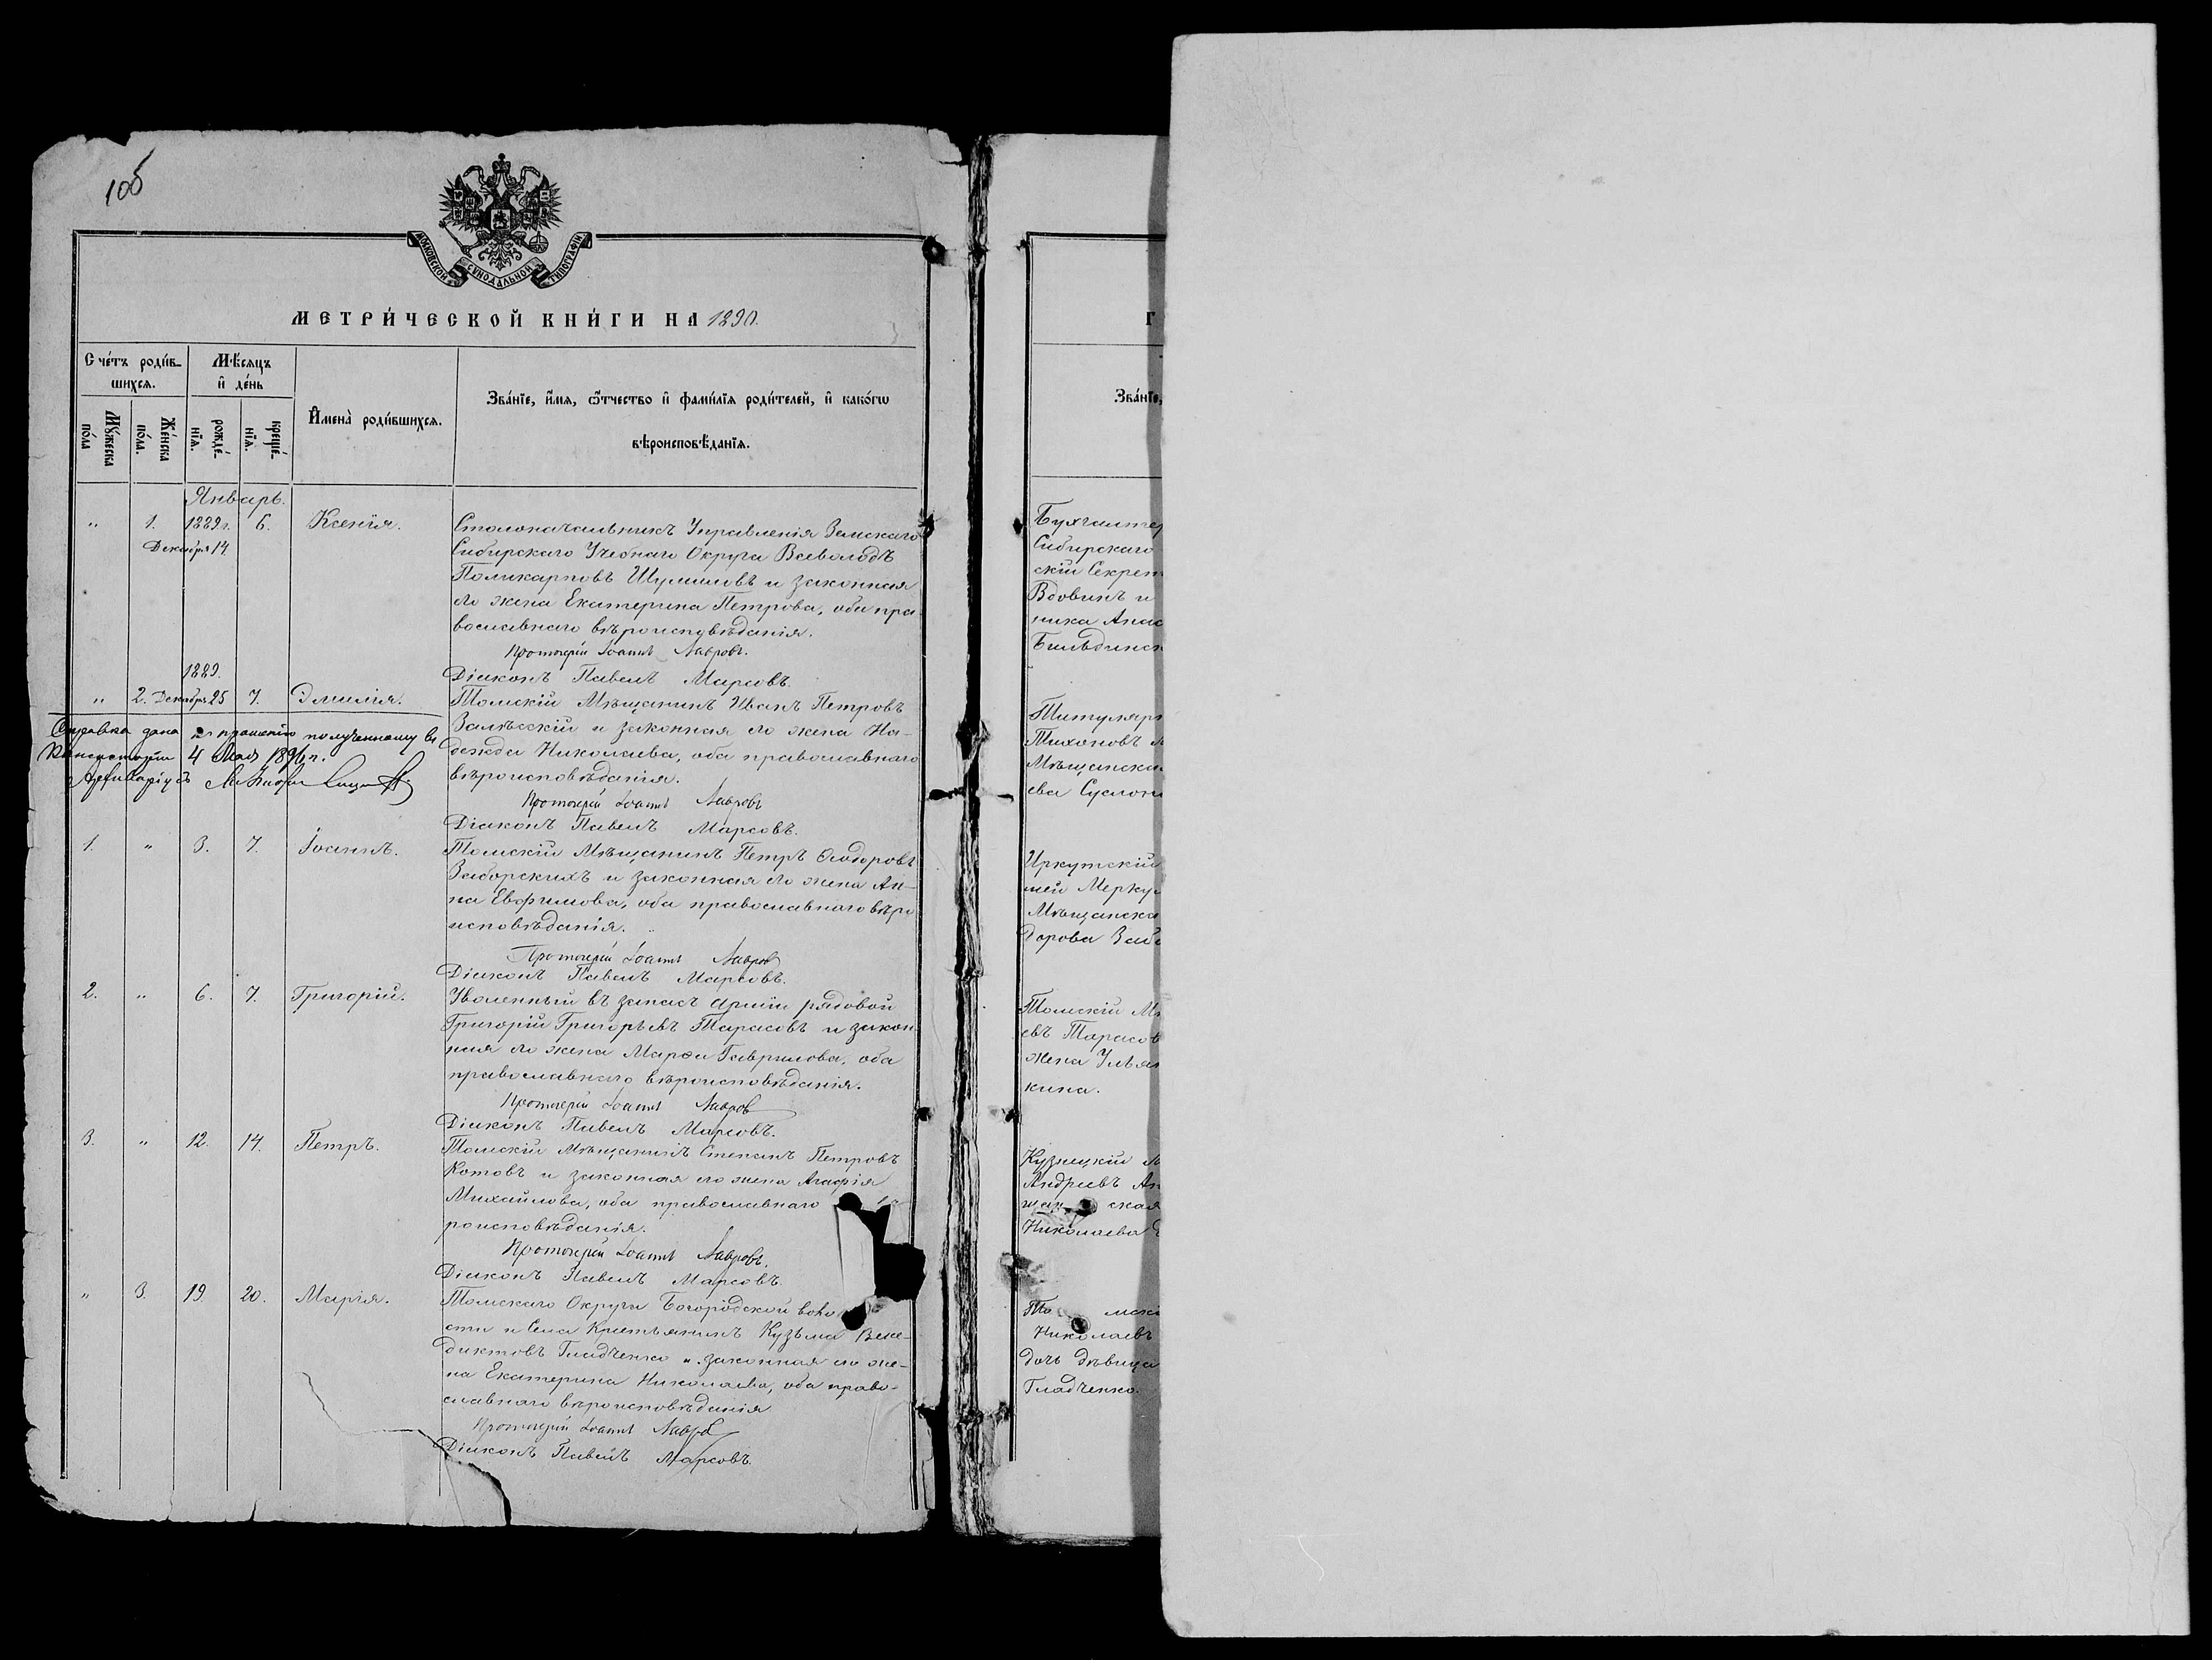 105
МОСКОВСКОЙ СУНОДАЛЬНОЙ ТИПОГРАФІИ
МЕТРИ́ЧЕСКОЙ КНИ́ГИ НА 1890.
Сче́тъ роди́в-
шихся.
Мѣ́сяцъ
и҆ де́нь
Му́жеска
по́ла
Же́нска
по́ла.
рожде́-
нїя.
креще́-
нїя.
И҆мена̀ роди́вшихся.
Зва́нїе, и҆́мя, ѻ҆́тчество и҆ фами́лїя роди́телей, и҆ како́гѡ
вѣроисповѣ́данїя.
Январь.
" 1. 1889 г. 6. Ксенія.
Декабря 14.
Столоначальникъ Управленія Западнаго
Сибирскаго Учебнаго Округа Всеволодъ
Поликарповъ Шумиловъ и законная
его жена Екатерина Петрова, оба пра-
вославнаго вѣроисповѣданія.
Протоіерей Іоаннъ Лавровъ.
Діаконъ Павелъ Марсовъ.
1889.
" 2. Декабря 25 7. Эмилія.
Томскій Мѣщанинъ Иванъ Петровъ
Залѣсскій и законная его жена На-
дежда Николаева, оба православнаго
вѣроисповѣданія.
Протоіерей Іоаннъ Лавровъ
Діаконъ Павелъ Марсовъ.
Справка дана по прошенію полученному въ
Консисторіи 4 Мая 1896 г.
Архиваріусъ
1. " 3. 7. Іоаннъ.
Томскій Мѣщанинъ Петръ Ѳеодоровъ
Заборскихъ и законная его жена Ан-
на Евфимова, оба православнаго вѣро
исповѣданія.
Протоіерей Іоаннъ Лавров
Діаконъ Павелъ Марсовъ.
2. " 6. 7. Григорій.
Уволенный въ запасъ арміи рядовой
Григорій Григорьевъ Тарасовъ и закон-
ная его жена Марѳа Гаврилова, оба
православнаго вѣроисповѣданія.
Протоіерей Іоаннъ Лавров
Діаконъ Павелъ Марсовъ.
3. " 12. 14. Петръ.
Томскій Мѣщанинъ Степанъ Петровъ
Котовъ и законная его жена Агафія
Михайлова, оба православнаго
роисповѣданія.
Протоіерей Іоаннъ Лавровъ.
Діаконъ Павелъ Марсовъ.
" 3. 19. 20. Марія.
Томскаго Округа Богородской воло
сти и Села Крестьянинъ Кузьма Вене-
диктовъ Гладченко и законная его же-
на Екатерина Николаева, оба право-
славнаго вѣроисповѣданія
Протоіерей Іоаннъ Лавров
Діаконъ Павелъ Марсовъ.
Г
Зва́нїе,
Бухгалтер
Сибирскаго
скій Секрет
Вдовинъ и
ника Анас
Бильдинск
Титулярн
Тихоновъ
Мѣщанска
ева Суслон
Иркутскій
мей Мерку
Мѣщанска
дорова Заб
Томскій Мѣ
евъ Тарасов
жена Ульян
кина.
Кузнецкій М
Андреевъ Ан
щан ская
Николаева
То мскі
Николаевъ
дочь дѣвица
Гладченко.